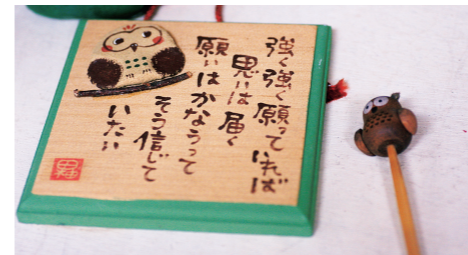 強く強く願っていれば
思いは届く
願いはかなうって
そう信じて
いたい